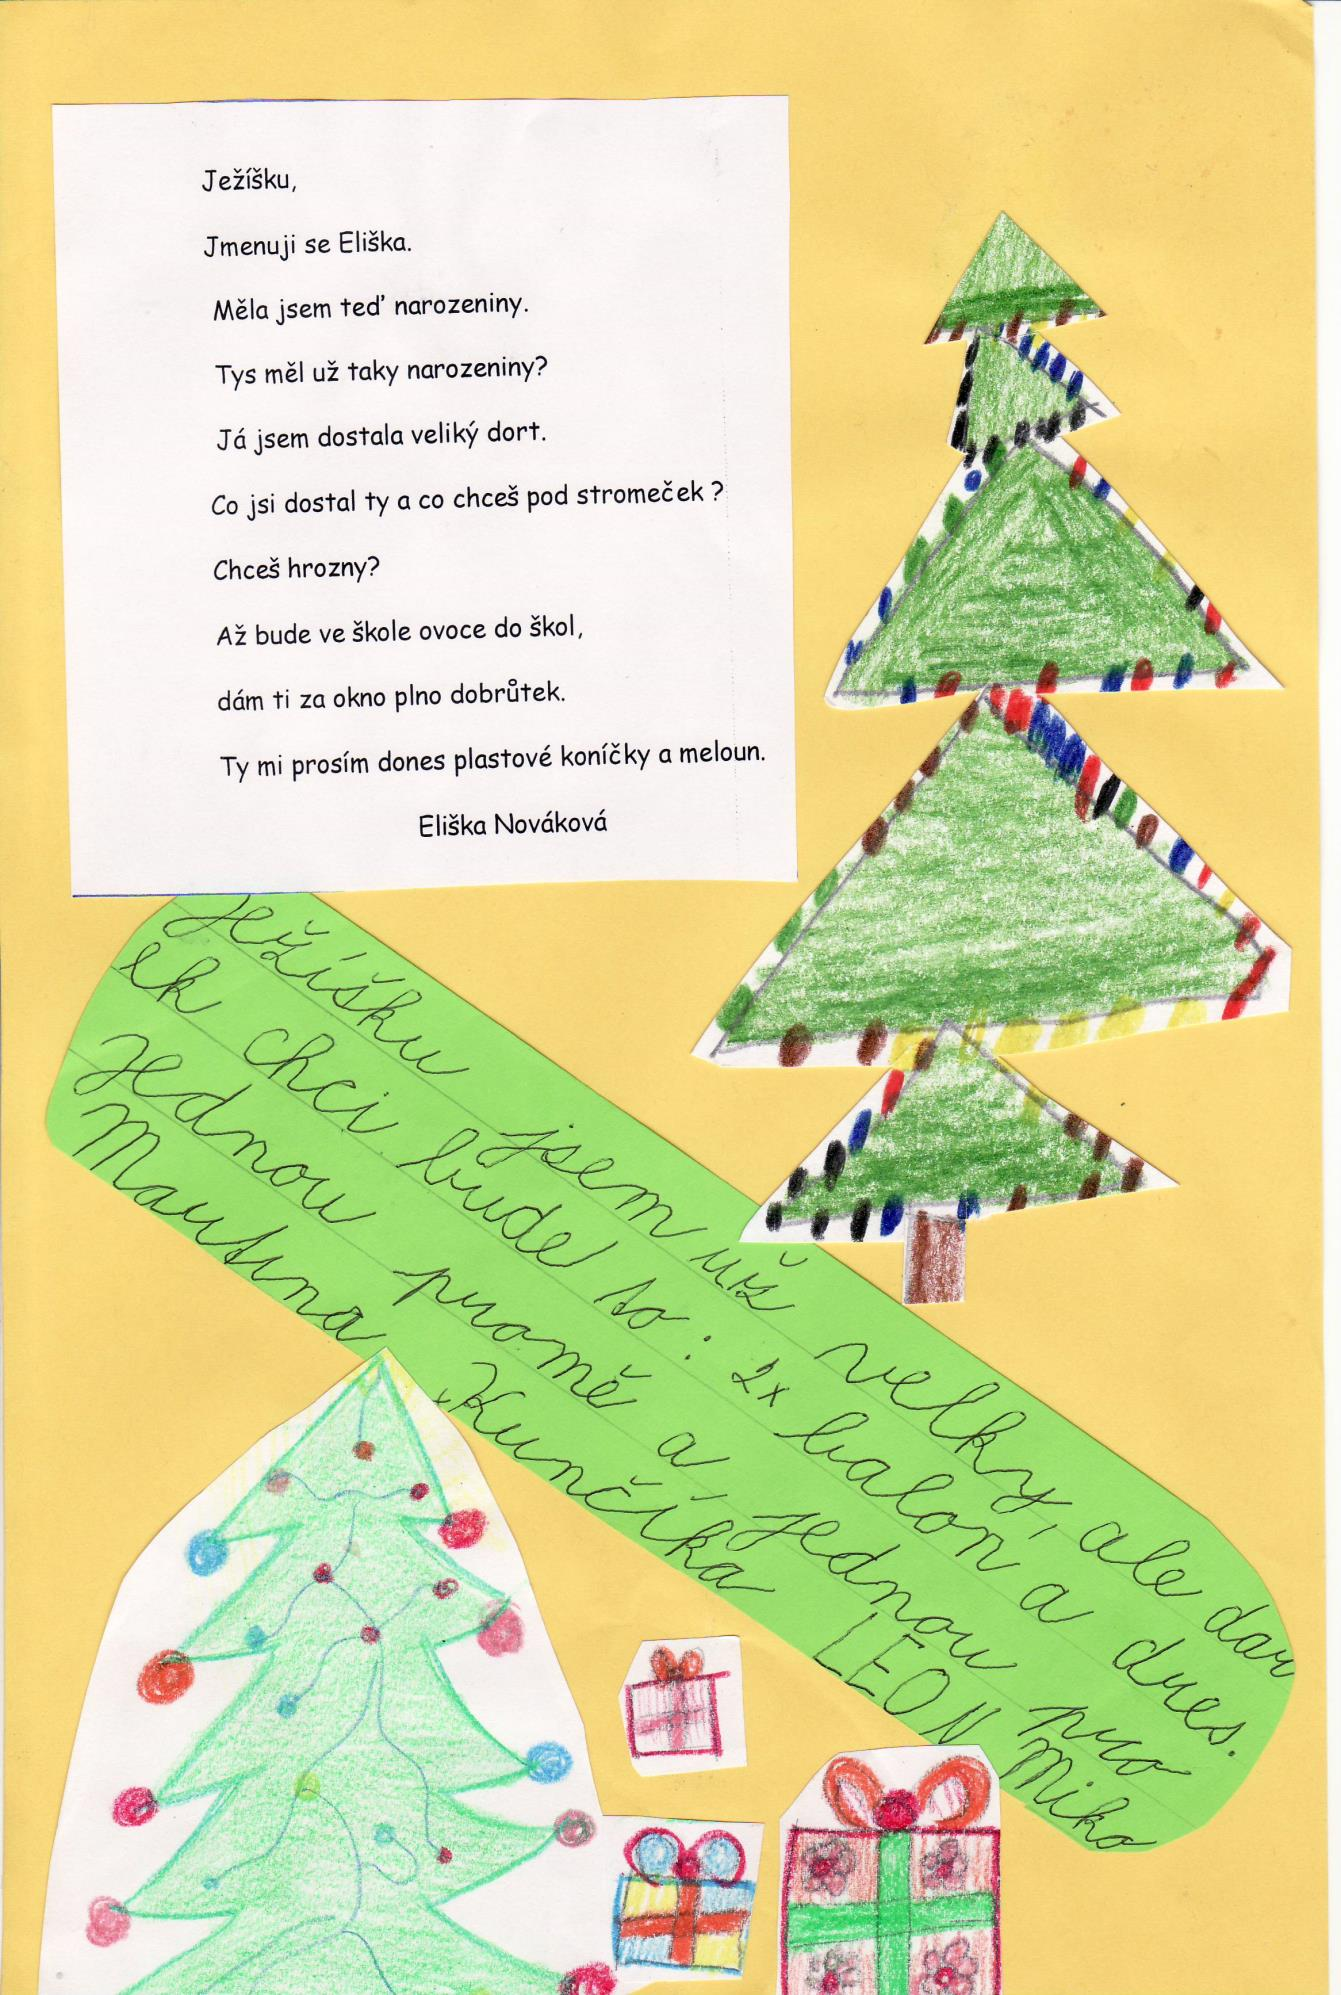 Ježíšku,
Jmenuji se Eliška.
Měla jsem teď narozeniny.
Tys měl už taky narozeniny?
Já jsem dostala veliký dort.
Co jsi dostal ty a co chceš pod stromeček ?
Chceš hrozny?
Až bude ve škole ovoce do škol,
dám ti za okno plno dobrůtek.
Ty mi prosím dones plastové koníčky a meloun.
Eliška Nováková
Ježíšku jsem už velky, ale dar
ek chci bude to: 2x balon a dres.
jednou promě a jednou pro
Martina Kunčíka LEON Miko